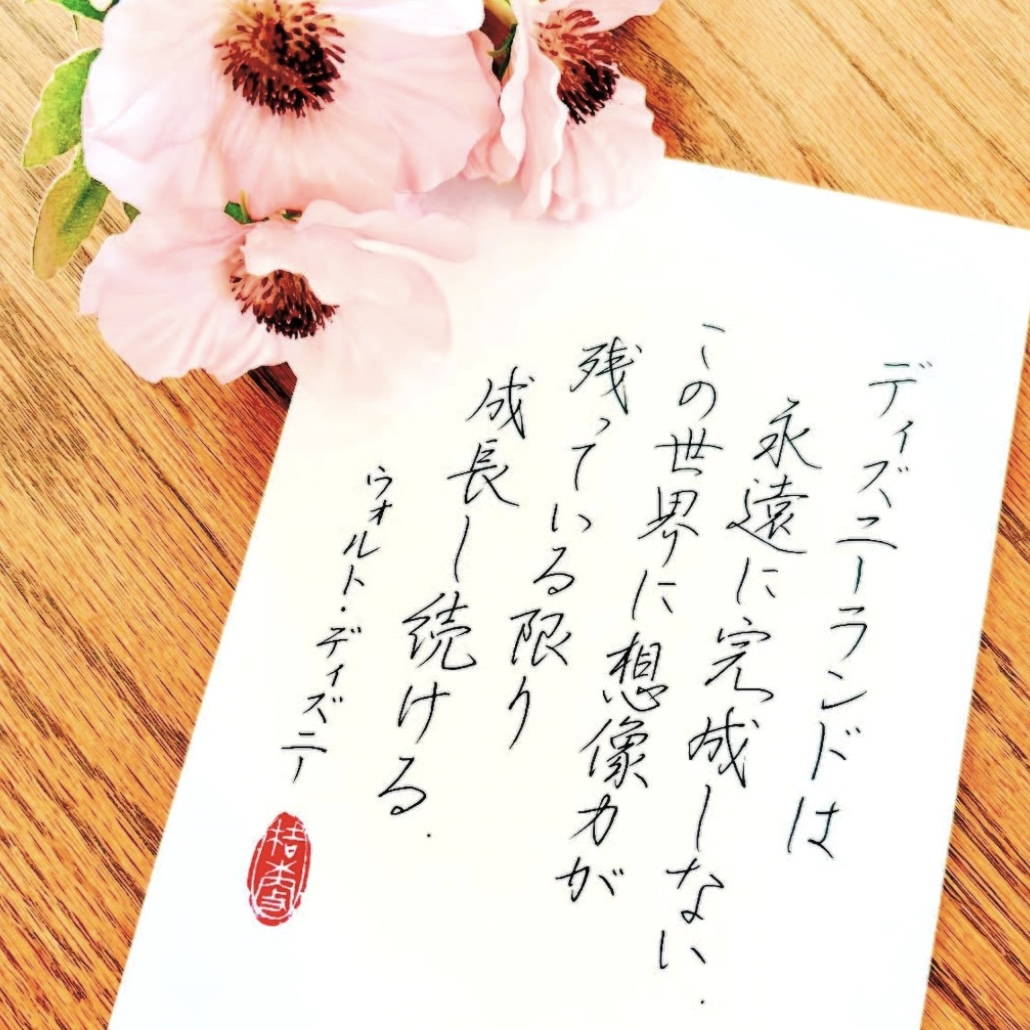 ディズニーランドは
永遠に完成しない.
この世界に想像力が
残っている限り
成長し続ける.
ウォルト・ディズニー